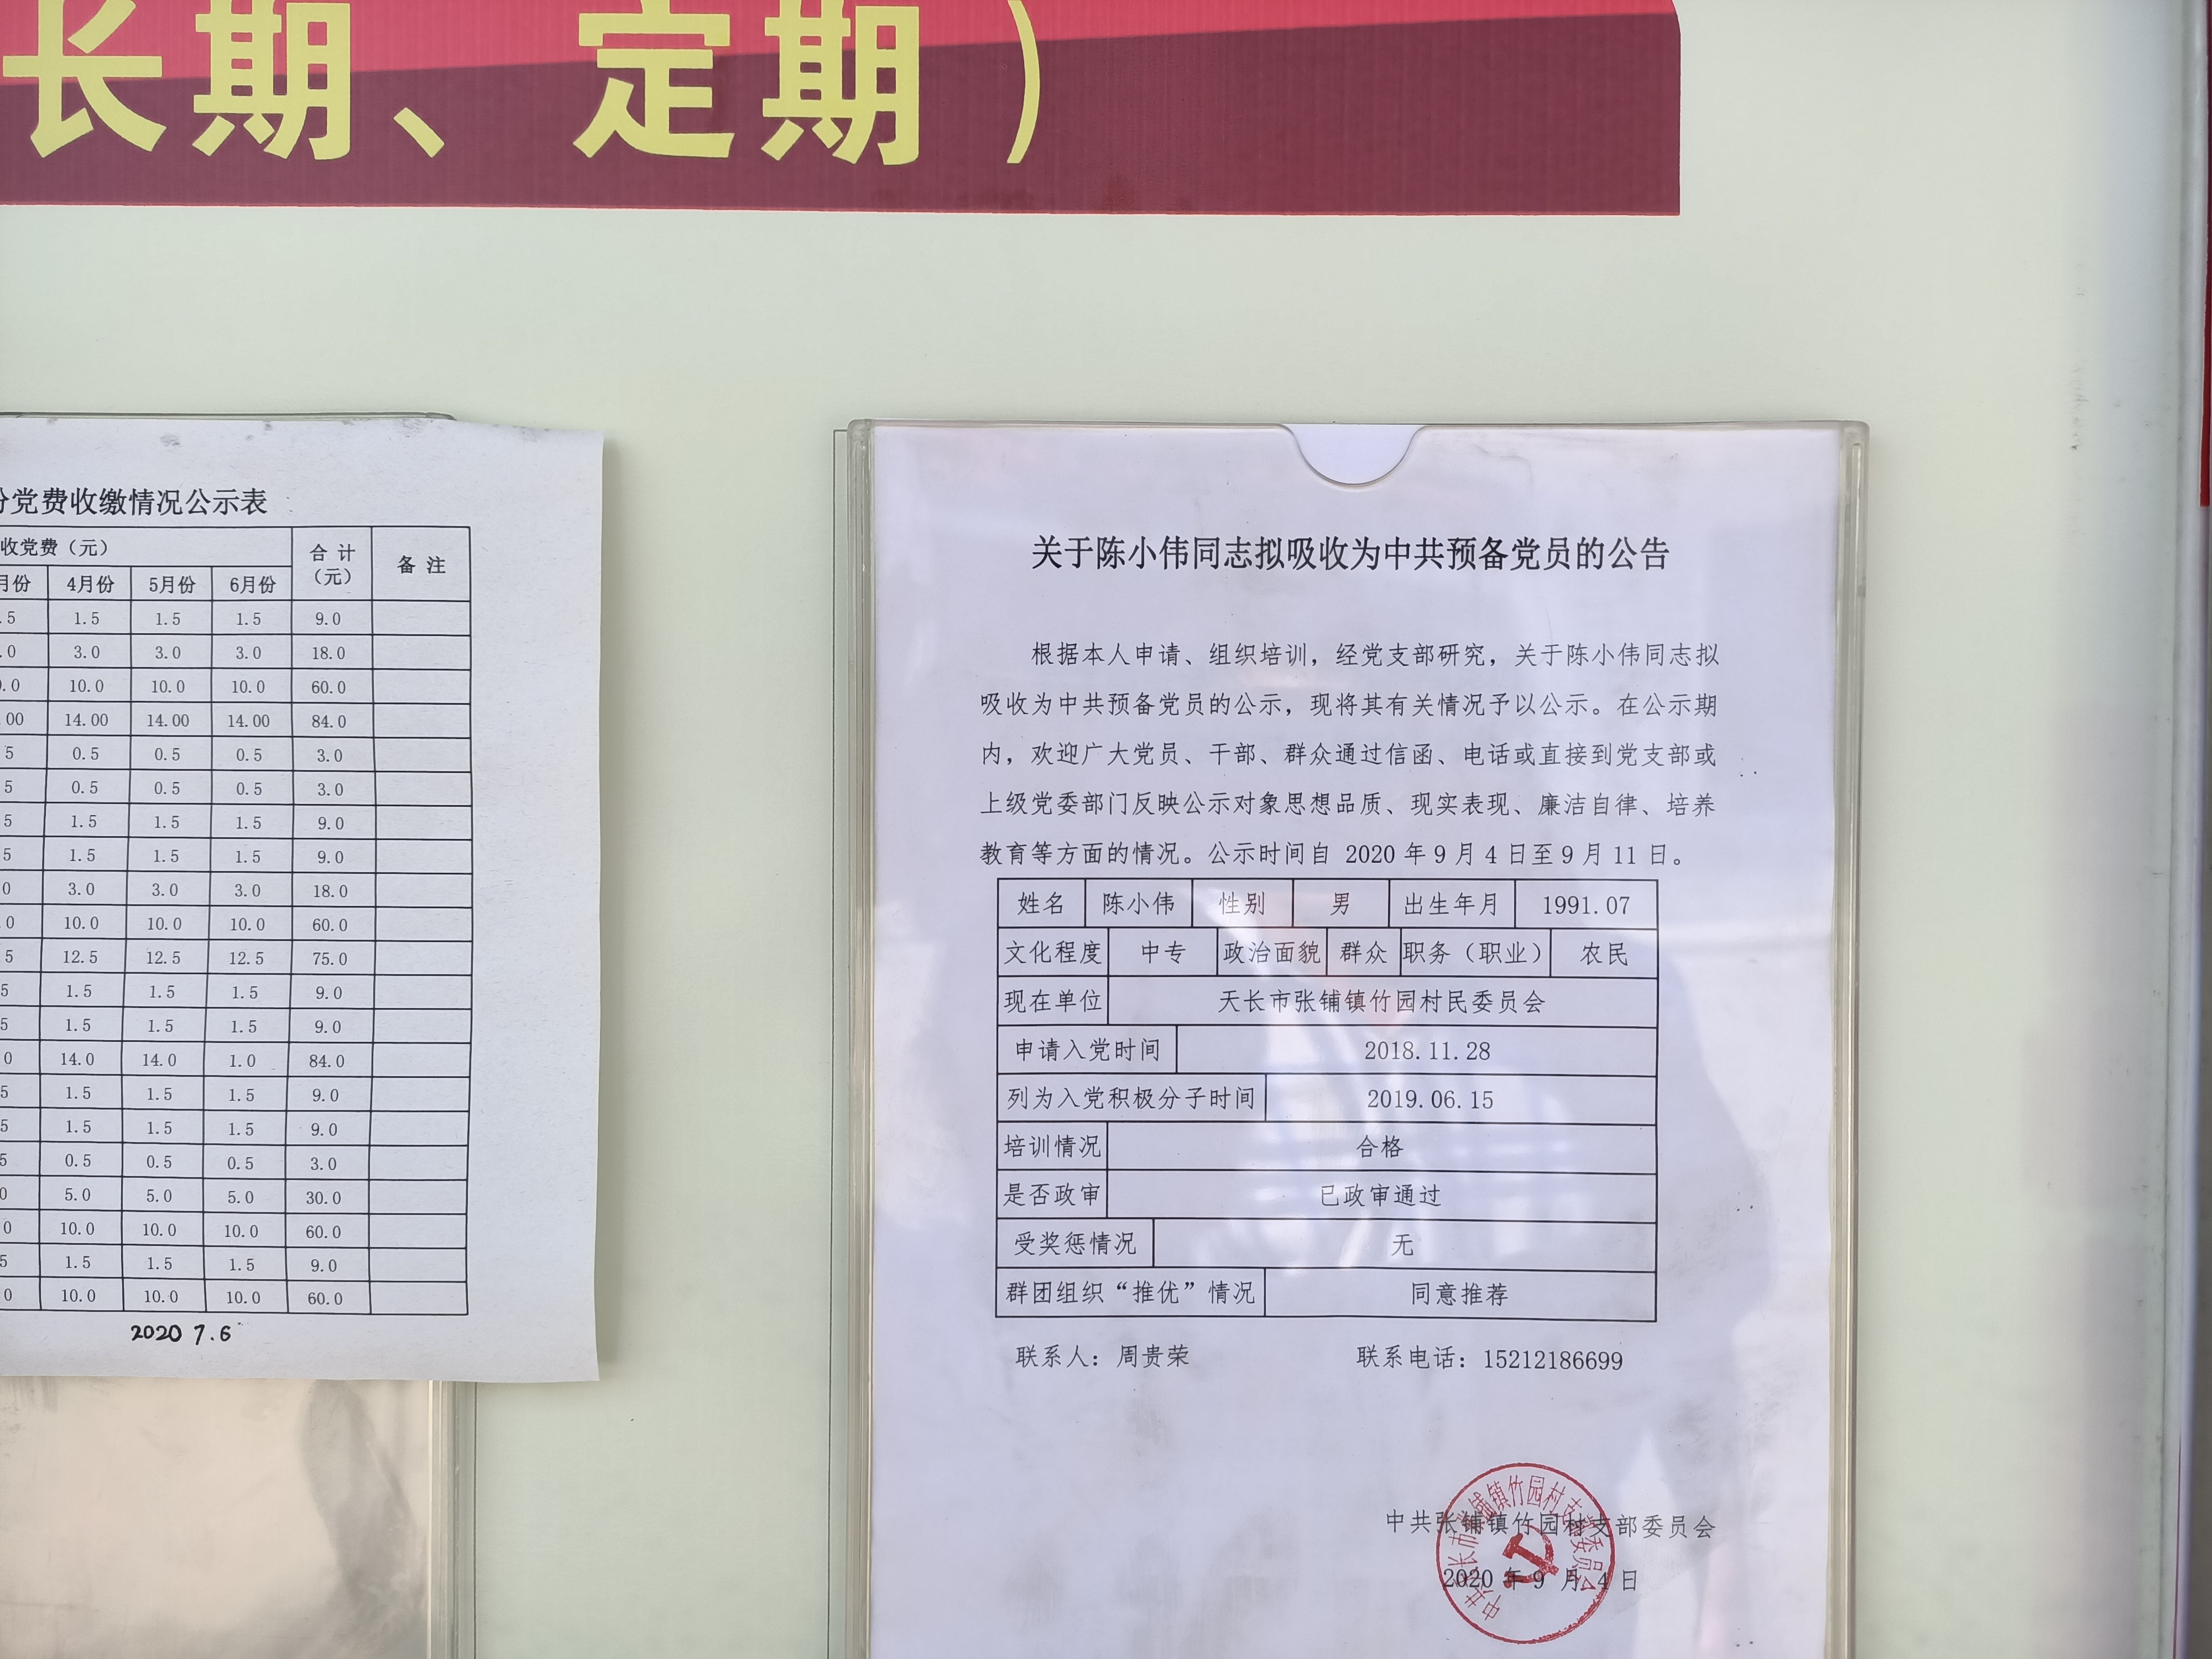 长期、定期）
份党费收缴情况公示表
收党费（元） 合计（元） 备注
月份 4月份 5月份 6月份
.5 1.5 1.5 1.5 9.0
.0 3.0 3.0 3.0 18.0
.0 10.0 10.0 10.0 60.0
.00 14.00 14.00 14.00 84.0
5 0.5 0.5 0.5 3.0
5 0.5 0.5 0.5 3.0
5 1.5 1.5 1.5 9.0
5 1.5 1.5 1.5 9.0
0 3.0 3.0 3.0 18.0
.0 10.0 10.0 10.0 60.0
5 12.5 12.5 12.5 75.0
5 1.5 1.5 1.5 9.0
5 1.5 1.5 1.5 9.0
0 14.0 14.0 1.0 84.0
5 1.5 1.5 1.5 9.0
5 1.5 1.5 1.5 9.0
5 0.5 0.5 0.5 3.0
0 5.0 5.0 5.0 30.0
0 10.0 10.0 10.0 60.0
5 1.5 1.5 1.5 9.0
0 10.0 10.0 10.0 60.0
2020 7.6
关于陈小伟同志拟吸收为中共预备党员的公告
根据本人申请、组织培训，经党支部研究，关于陈小伟同志拟
吸收为中共预备党员的公示，现将其有关情况予以公示。在公示期
内，欢迎广大党员、干部、群众通过信函、电话或直接到党支部或
上级党委部门反映公示对象思想品质、现实表现、廉洁自律、培养
教育等方面的情况。公示时间自 2020 年 9 月 4 日至 9 月 11 日。
姓名 陈小伟 性别 男 出生年月 1991.07
文化程度 中专 政治面貌 群众 职务（职业） 农民
现在单位 天长市张铺镇竹园村民委员会
申请入党时间 2018.11.28
列为入党积极分子时间 2019.06.15
培训情况 合格
是否政审 已政审通过
受奖惩情况 无
群团组织“推优”情况 同意推荐
联系人：周贵荣 联系电话：15212186699
中共张铺镇竹园村支部委员会
2020 年 9 月 4 日
中共天长市张铺镇竹园村支部委员会